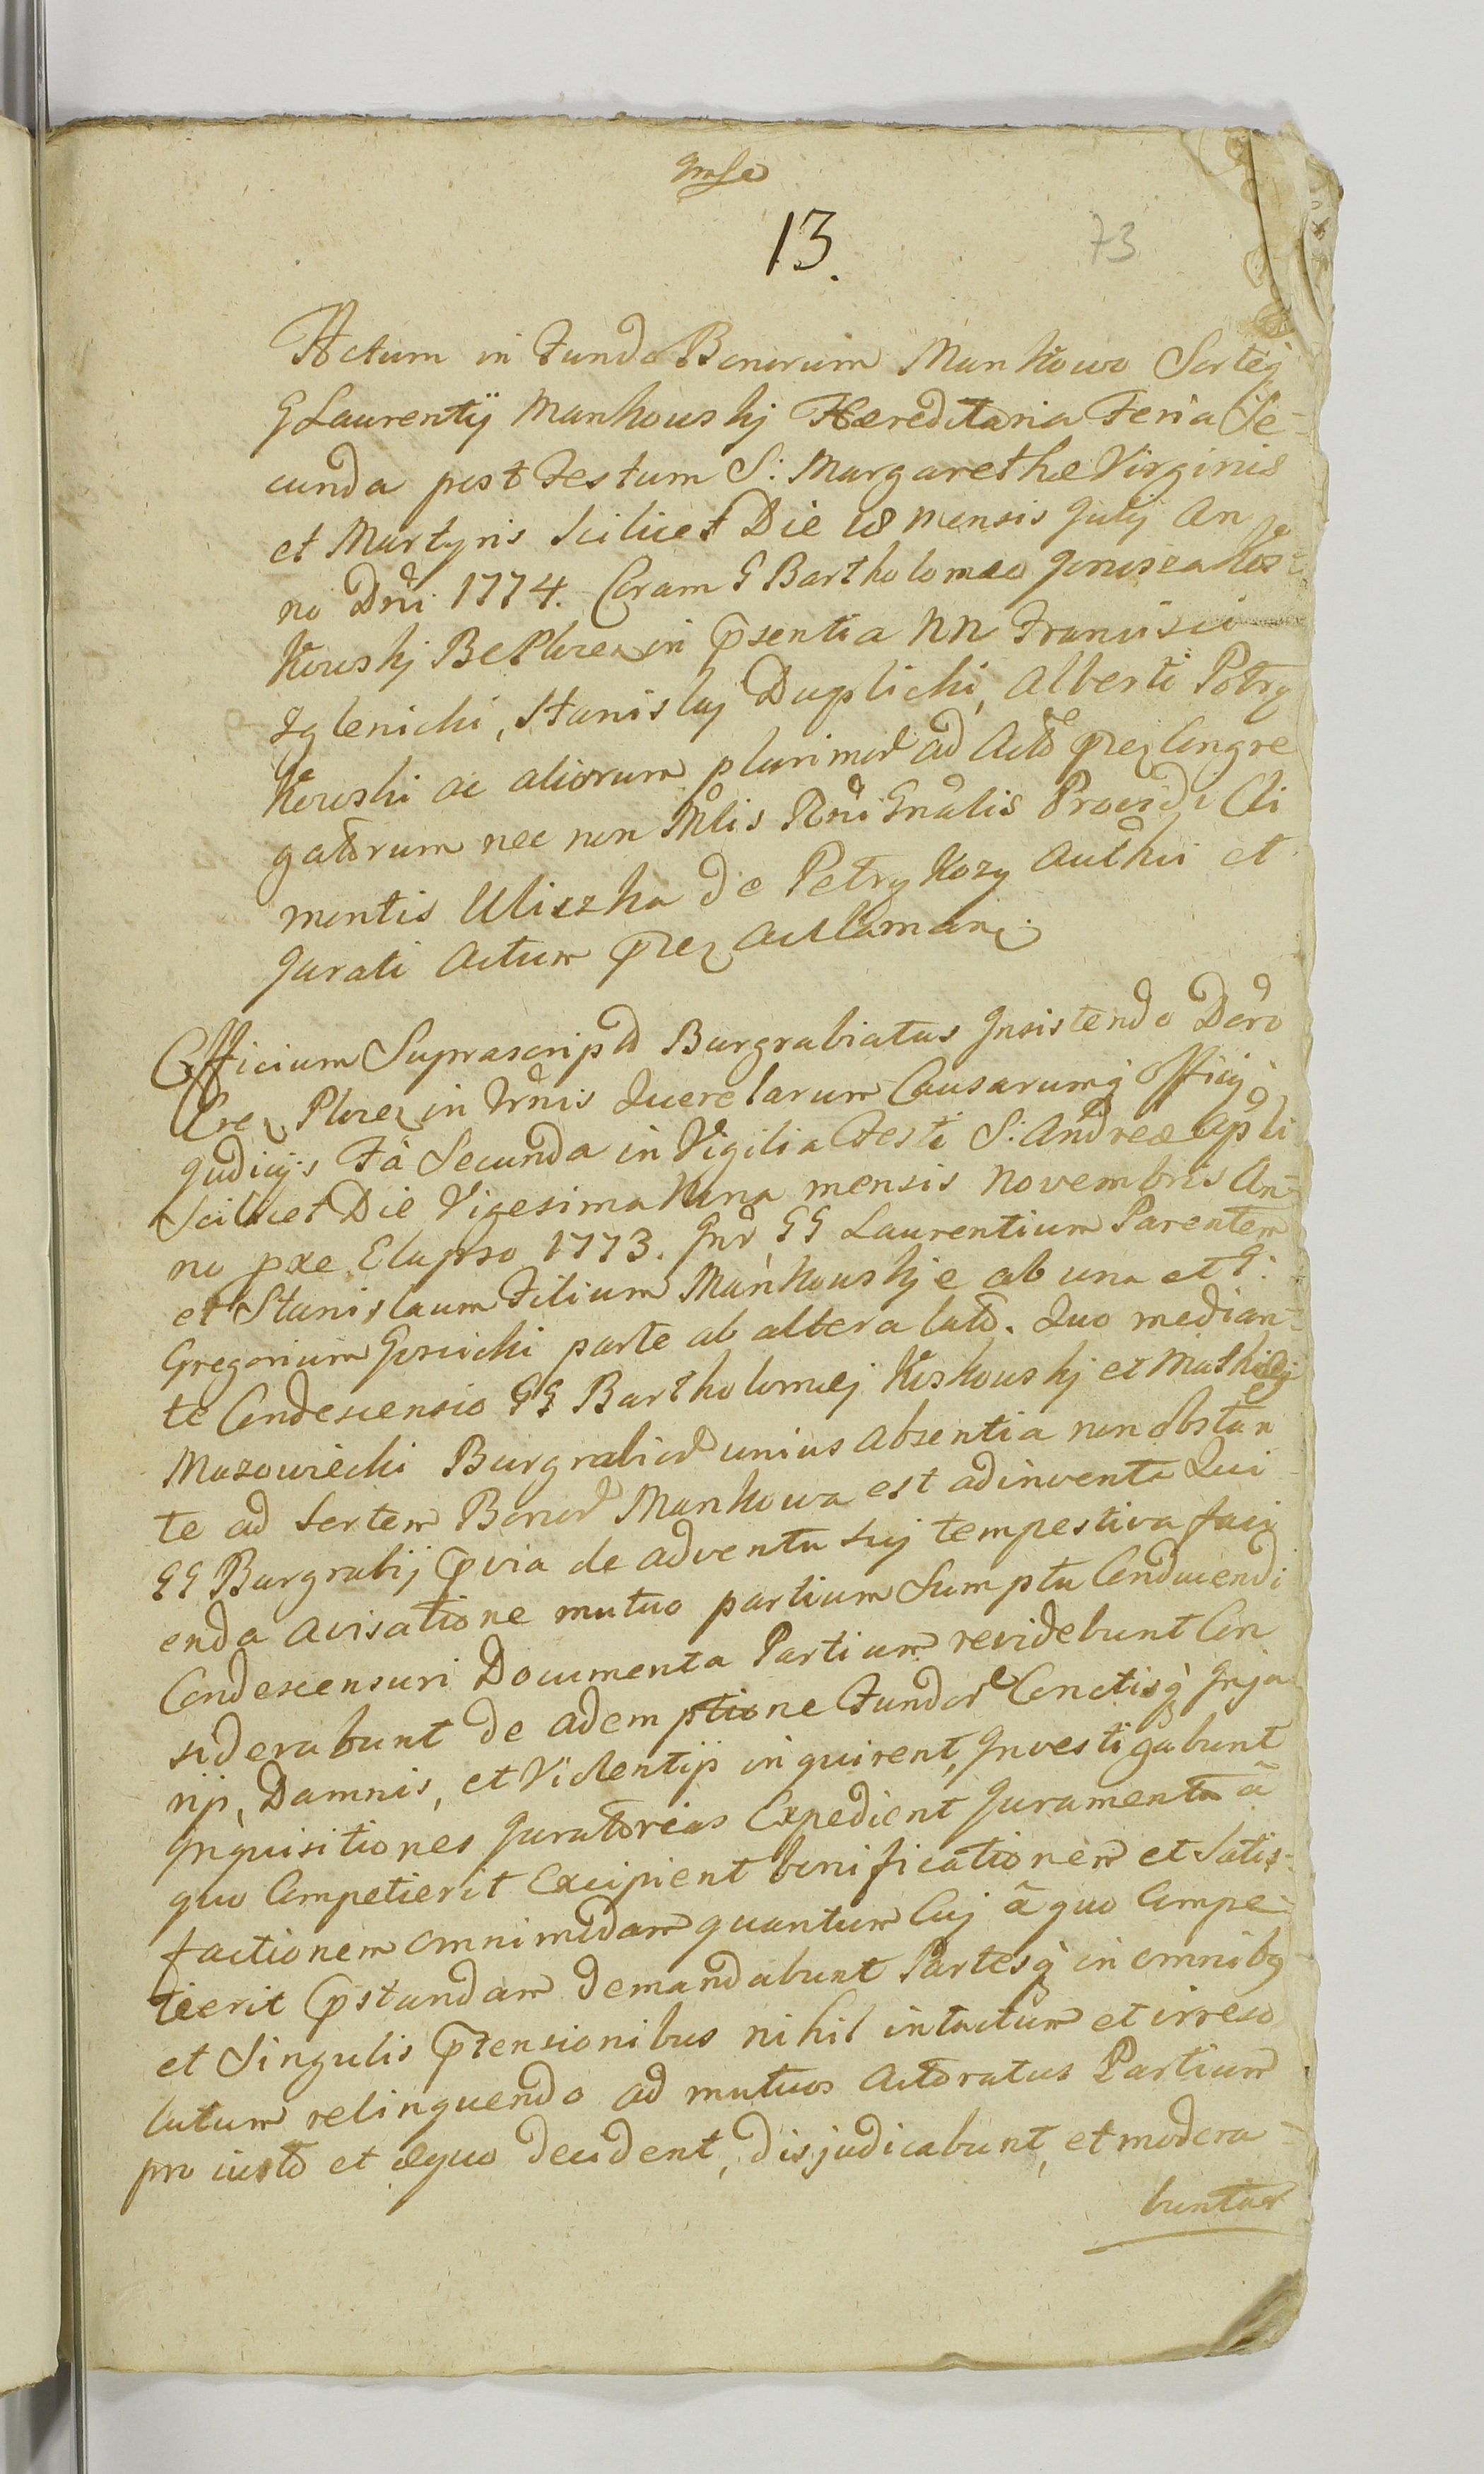 13.
73
Actum in Fundo Bonorum Mankowo Sorteq̃
G Laurentij Mankowskj Hæreditaria Feria Se-
cunda post Festum S: Margarethæ Virginis
et Martyris Scilicet Die 18 mensis Julij An
no Dñi 1774. Coram G Bartholomæo Kos-
kowskj in p̃sentia NN Francisci
Zglenicki, Stanislaj Duplicki, Alberti Potry
kowski ac aliorum plurimor̃ ad Actũ p̃ñs Congre
gatorum nec non Mĩlis Rñi Gñalis Providi Cli
mentis Uliszka de Petrykozy Authci et
Jurati Actum p̃ñs acclaman.
Officium Suprascriptũ Burgrabiatus Insistendo Decrõ
in Trmĩs Querelarum Causarumq̃ Officij
Judicijs Fã Secunda in Vigilia Festi S: Andreæ Apĩli
Scilicet Die Vigesima Nona mensis Novembris An-
no præ Elapso 1773. Intr̃ GG Laurentium Parentem
et Stanislaum Filium Mankowskje ab una et G:
Gregorium Gosicki parte ab altera latõ. Quo median-
te Condescensio GG Bartholomæj Koskowskj et Mathiæj
Mazowiecki Burgrabior̃ unius absentia non obstan
te ad Sortem Bonor̃ Mankowa est adinventa Qui
GG Burgrabij p̃via de adventu suj tempestiva faci
enda avisatione mutuo partium Sumptu Conducendi
Condescensuri Documenta Partium revidebunt Con
siderabunt de ademptione Fundor̃ Cunctisq̃ Inju-
rijs, Damnis, et Violentijs inquirent, Investigabunt
Inquisitiones Juratorias Expedient Juramenta â
quo Competierit Excipient bonificationem et Satis-
factionem omnimodam quantum Cuj â quo Compe-
tierit p̃standam demandabunt Partesq̃ in omnibq
et Singulis p̃tensionibus nihil intactum et irreso
lutum relinquendo ad mutuos Actoratus Partium
pro iusto et æquo decident, disjudicabunt, et modera-
buntur